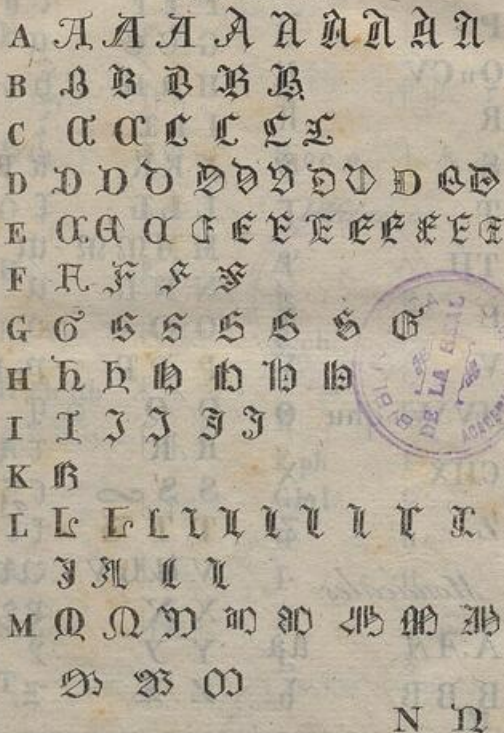 A A A A A A A A A A
B B B B B B
C C C C C C C
D D D D D D D D D D D D
E E E E E E E E E E E E E
F F F F F
G G G G G G G G
H H H H H H H
I I I I I I
K K
L L L L L L L L L L
L L L L
M M M M M M M M M
M M M
N N
BIBLIO
DE LA REAL
ACADEMIA